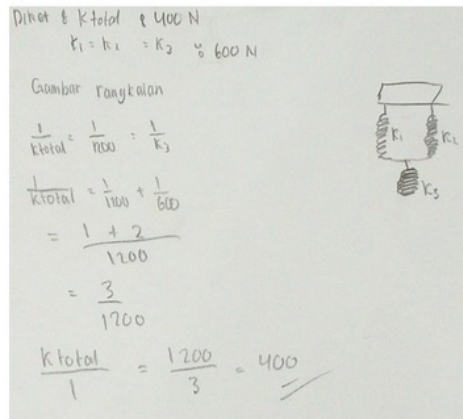 Diket : K total : 400 N
K₁ = K₂ = K₃ : 600 N
Gambar rangkaian
1/Ktotal = 1/1200 = 1/K₃
1/Ktotal = 1/1200 + 1/600
= 1 + 2 / 1200
= 3/1200
Ktotal/1 = 1200/3 = 400
K₁
K₂
K₃